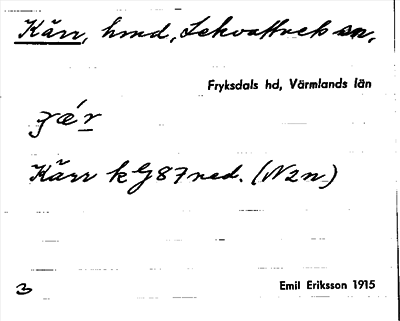 Kärr, hmd, Lekvattnek sn,
Fryksdals hd, Värmlands län
Kärr k G87 ned. (N2n)
3
Emil Eriksson 1915